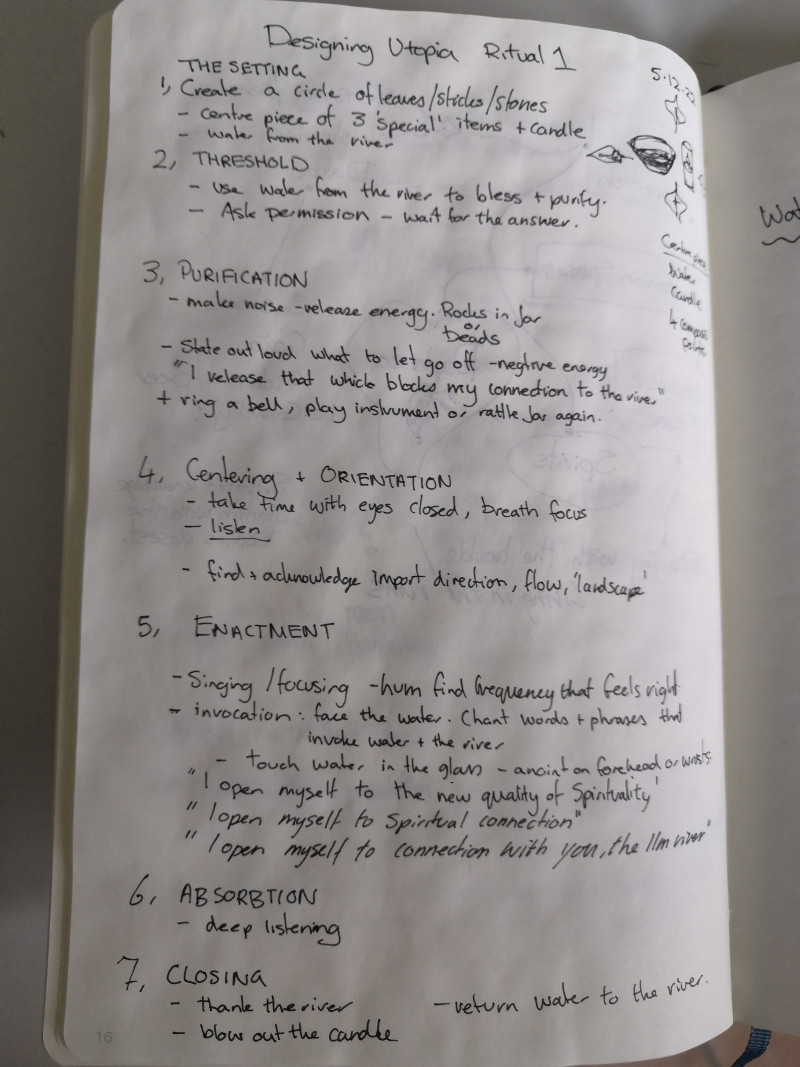 Designing Utopia Ritual 1
5.12.22
THE SETTING
1, Create a circle of leaves/sticks/stones
- centre piece of 3 'special' items + candle
- water from the river
2, THRESHOLD
- use water from the river to bless + purify.
- Ask permission - wait for the answer.
Centre piece
Water
Candle
4 compass
points
Wat
3, PURIFICATION
- make noise - release energy. Rocks in Jar
or
beads
- State out loud what to let go off - negtive energy
"I release that which blocks my connection to the river"
+ ring a bell, play instrument or rattle Jar again.
4, Centering + ORIENTATION
- take time with eyes closed, breath focus
- listen
- find + acknowledge import direction, flow, 'landscape'
5, ENACTMENT
- Singing / focusing - hum find frequency that feels right
- invocation: face the water. Chant words + phrases that
invoke water + the river
- touch water in the glass - anoint on forehead or wrists.
"I open myself to the new quality of Spirituality'
"I open myself to Spiritual connection"
"I open myself to connection with you, the Ilm river"
6, ABSORBTION
- deep listening
7, CLOSING
- thank the river
- return water to the river.
- blow out the candle
16